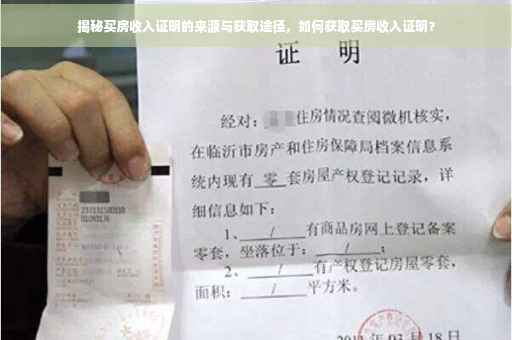 揭秘买房收入证明的来源与获取途径，如何获取买房收入证明？
证 明
经对：住房情况查阅微机核实，
在临沂市房产和住房保障局档案信息系
统内现有 零 套房屋产权登记记录，详
细信息如下：
1、 / 有商品房网上登记备案
零套，坐落位于： / ；
2、 / 有产权登记房屋零套，
面积： / 平方米。
月18日